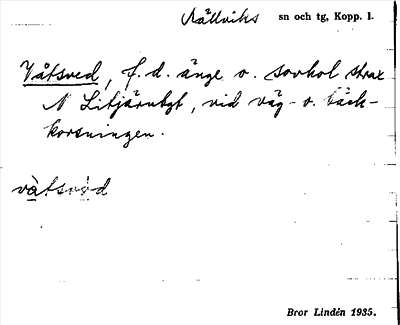 Rättviks sn och tg, Kopp. l.
Våtsved, f. d. änge o. sovhol strax
N Litjärnbgt, vid väg- o. bäck-
korsningen.
våtsvèd
Bror Lindén 1935.